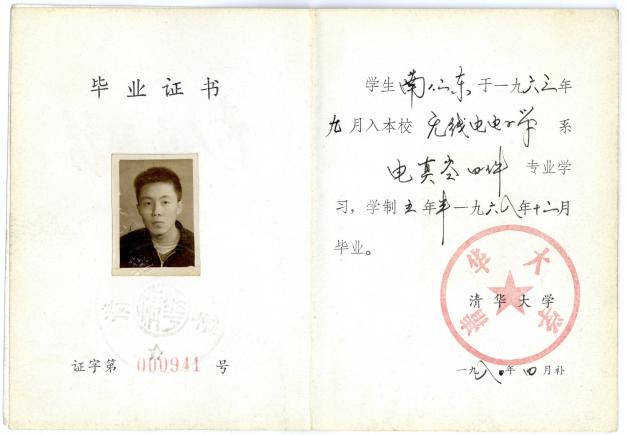 毕业证书
证字第 000941 号
学生南仙东于一九六三年
九月入本校无线电电子学系
电真空 专业学
习，学制五年半一九六八年十二月
毕业。
清华大学
清华大学
一九八〇年四月补